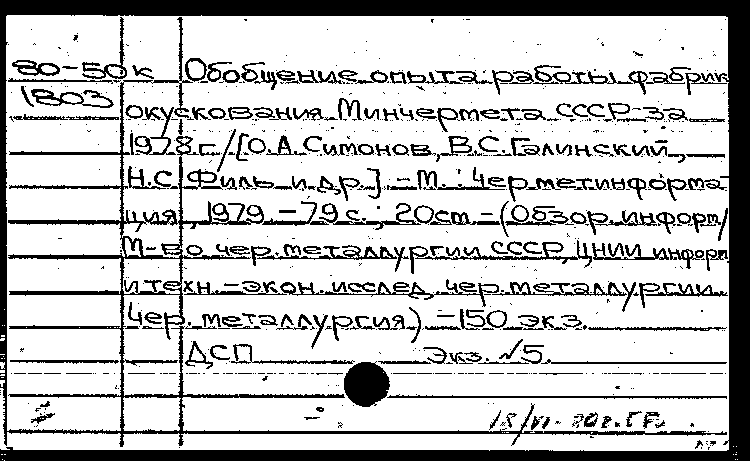 80-50к Обобщение опыта работы фабрик
1803 окускования Минчермета СССР за
1978 г. / [О.А. Симонов, В.С. Галинский,
Н.С Филь и др.] - М. : Черметинформа-
ция, 1979. - 79 с. ; 20 cm - (Обзор. информ /
М-во чер. металлургии СССР, ЦНИИ информ
и техн.-экон. исслед. чер. металлургии.
Чер. металлургия) - 150 экз.
ДСП Экз. №5.
18/VI- 80г.